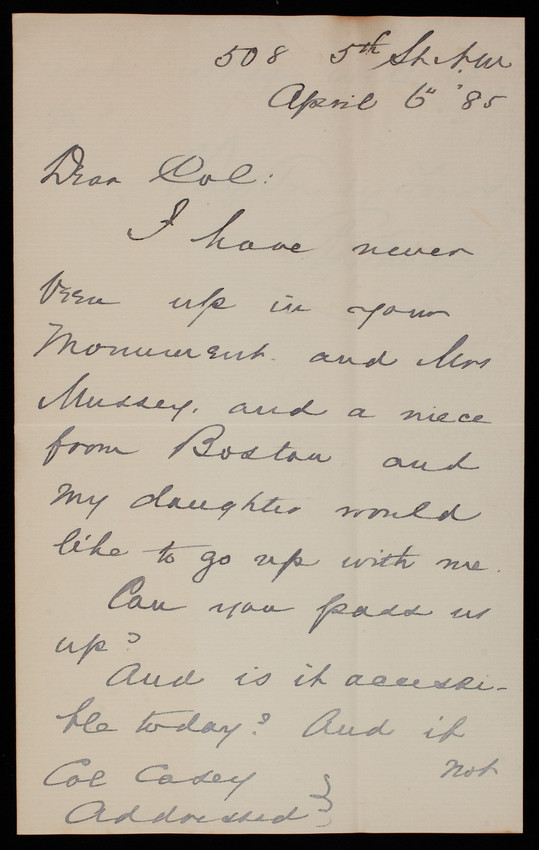 508 5th St. N.W.
April 6" '85
Dear Col:
I have never
been up in your
Monument. and Mrs
Mussey. and a niece
from Boston and
my daughter would
like to go up with me.
Can you pass us
up?
And is it accessi-
ble today? And if
not
Col Casey
Addressed